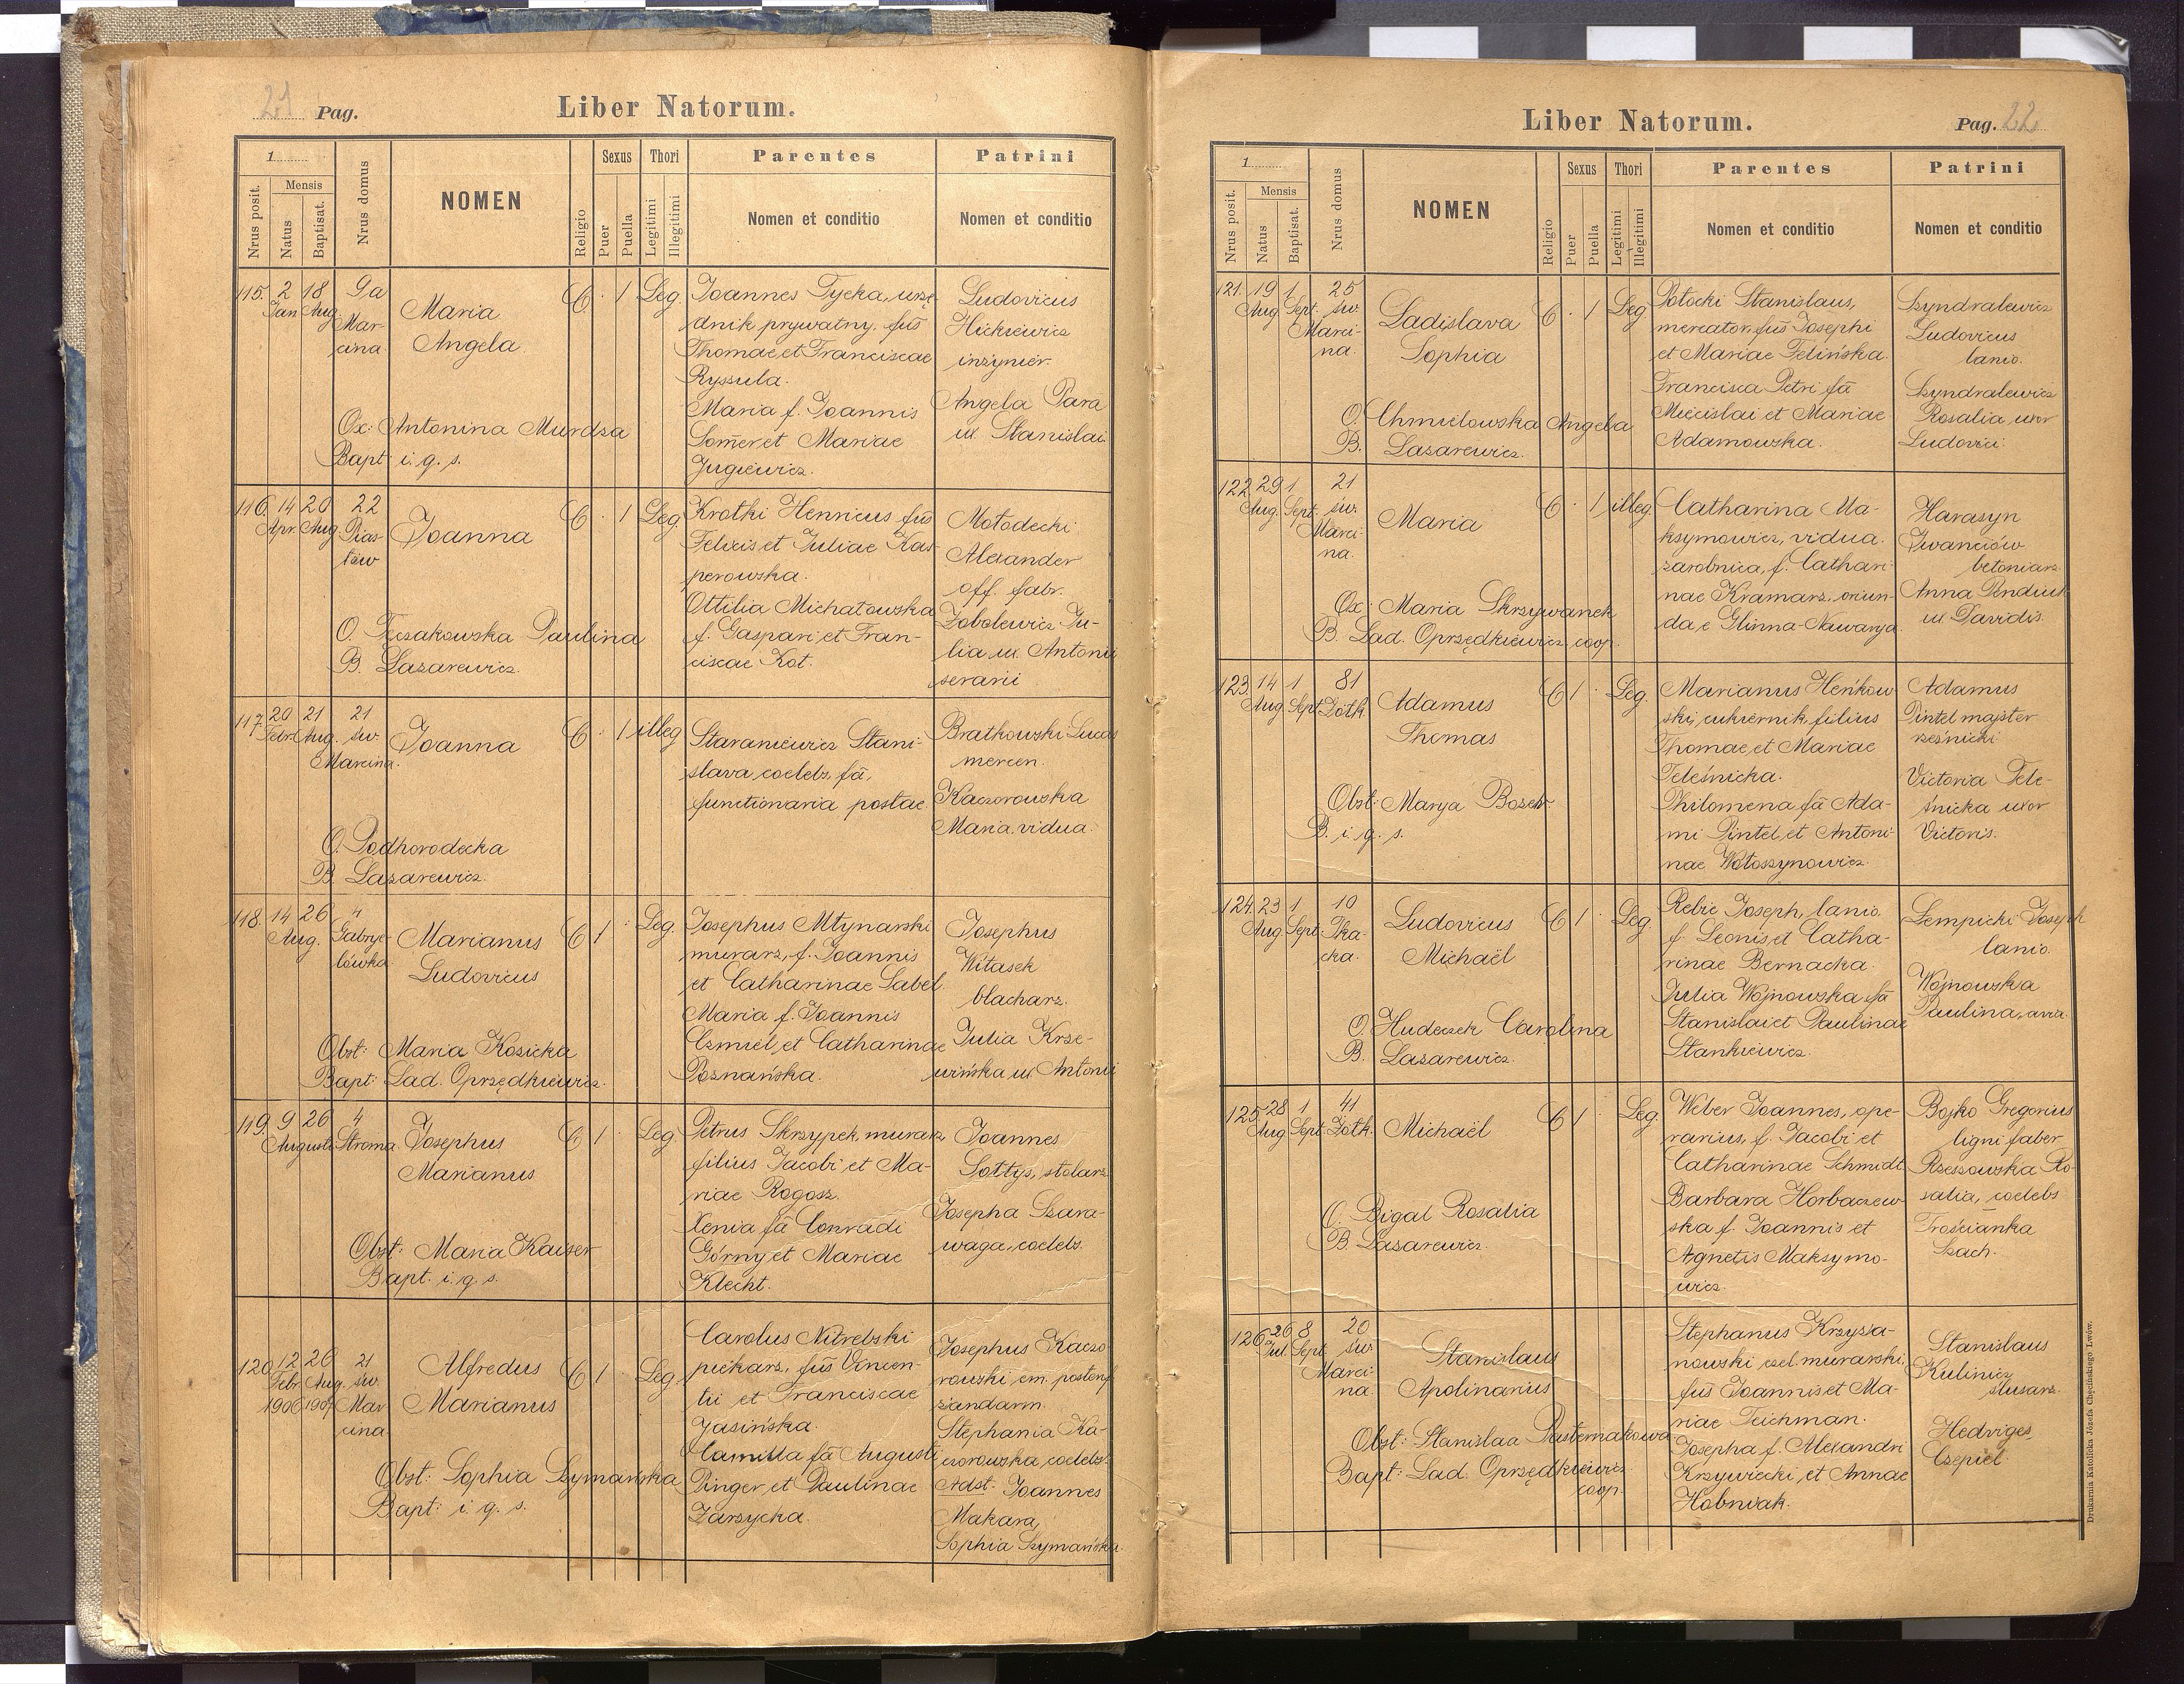 21 Pag.
Liber Natorum.
1
Nrus posit.
Mensis
Natus
Baptisat.
Nrus domus
NOMEN
Religio
Sexus
Puer
Puella
Thori
Legitimi
Illegitimi
Parentes
Nomen et conditio
Patrini
Nomen et conditio
115. 2 Jan 18 Aug 9a Marcina
Maria
Angela
C · 1 Leg.
Ox: Antonina Murdza
Bapt i. g. s.
Joannes Tycka, urzę-
dnik prywatny, fus
Thomae et Franciscae
Ryssula.
Maria f. Joannis
Somer et Mariae
Jugiewicz.
Ludovicus
Hickiewicz
inżynier.
Angela Para
ux. Stanislai
116. 14 Apr. 20 Aug 22 Piastów
Joanna
C · 1 Leg.
O. Paulina
B. Lazarewicz.
Krotki Henricus fus
Felicis et Juliae Kas-
perowska.
Ottilia Michałowska
f. Gaspari et Fran-
ciscae Kot.
Mołodecki
Alexander
off. fabr.
Zobolewicz Ju-
lia ux. Antonii
serarii
117. 20 Febr. 21 Aug. 21 św. Marcina.
Joanna
C · 1 illeg
O. Podhorodecka
B. Lazarewicz.
Staraniewicz Stani-
slava, coelebs, fa,
functionaria postae
Bratkowski Lucas
mercen.
Kaczorowska
Maria, vidua.
118. 14 26 Aug. 4 Gabryelówka
Marianus
Ludovicus
C 1 · Leg.
Obst: Maria Kozicka
Bapt: Lad. Oprzędkiewicz.
Josephus Młynarski
murarz, f. Joannis
et Catharinae Sabel.
Maria f. Joannis
Czmiel, et Catharinae
Poznańska.
Josephus
Witasek
blacharz.
Julia Krze-
wińska ux. Antonii
119. 9 26 Augusti 4 Stroma
Josephus
Marianus
C 1 · Leg
Obst: Maria Kaiser
Bapt. i. g. s.
Petrus Skrzypek, murarz
filius Jacobi et Ma-
riae Rogosz.
Xenia fa Conradi
Górny et Mariae
Klecht.
Joannes
Sołtys, stolarz
Josepha Szara-
waga, coelebs.
120 12 Febr. 1906 26 Aug. 1907 21 św. Marcina
Alfredus
Marianus
C 1 · Leg
Obst: Sophia Szymańska
Bapt: i. g. s.
Carolus Nitrebski
piekarz, fus Vincen-
tii et Franciscae
Jasińska.
Camilla fa Augusti
Pinger, et Paulinae
Zarzycka.
Josephus Kaczo-
rowski em. postenf.
żandarm.
Stephania Ka-
czorowska, coelebs.
Adst. Joannes
Makara,
Sophia Szymańska.
Liber Natorum.
Pag. 22
1
Nrus posit.
Mensis
Natus
Baptisat.
Nrus domus
NOMEN
Religio
Sexus
Puer
Puella
Thori
Legitimi
Illegitimi
Parentes
Nomen et conditio
Patrini
Nomen et conditio
121. 19 Aug 1 Sept. 25 św. Marcina.
Ladislava
Sophia
C · 1 Leg
O. Chmielowska Angela
B. Lazarewicz.
Potocki Stanislaus,
mercator, fus Josephi
et Mariae Felińska.
Francisca Petri fa
Miecislai et Mariae
Adamowska.
Szyndralewicz
Ludovicus
lanio.
Szyndralewicz
Rosalia uxor
Ludovici
122. 29 Aug. 1 Sept. 21 św. Marcina.
Maria
C · 1 illeg.
Ox: Maria Skrzywanek
B. Lad. Oprzędkiewicz, coop.
Catharina Ma-
ksymowicz, vidua.
zarobnica, f. Cathari-
nae Kramarz, oriun-
da, e Glinna-Nawarya.
Harasyn
Iwanciów
betoniarz.
Anna Penduch
ux Davidis.
123. 14 Aug 1 Sept. 81 Żółk.
Adamus
Thomas
C 1 · Leg.
Obst: Marya Bosek
B. i. g. s.
Marianus Heńkow-
ski, cukiernik, filius
Thomae et Mariae
Teleśnicka.
Philomena fa Ada-
mi Pintel, et Antoni-
nae Wołoszynowicz.
Adamus
Pintel majster
rzeźnicki
Victoria Tele-
śnicka uxor
Victoris.
124. 23 Aug 1 Sept. 10 Tkacka.
Ludovicus
Michaël
C 1 · Leg.
O. Hudeczek Carolina
B. Lazarewicz.
Rebie Joseph, lanio.
f. Leonis et Catha-
rinae Bernacka.
Julia Wojnowska fa
Stanislai et Paulinae
Stankiewicz.
Lempicki Joseph
lanio.
Wójnowska
Paulina, avia.
125. 28 Aug 1 Sept. 41 Żółk.
Michaël
C 1 · Leg.
O. Bigal Rosalia
B. Lazarewicz.
Weber Joannes, ope-
rarius, f. Jacobi et
Catharinae Schmidt
Barbara Horbaczew-
ska f. Joannis et
Agnetis Maksymo-
wicz.
Bojko Gregorius
ligni faber
Rzeszowska Ro-
salia, coelebs
Trościanka
Szach.
126 26 Jul. 8 Sept. 20 św. Marcina.
Stanislaus
Apolinarius
Obst: Stanislaa Pasternakowa
Bapt: Lad. Oprzędkiewicz
coop.
Stephanus Krzyża-
nowski czel. murarski,
fus Joannis et Ma-
riae Teichman.
Josepha f. Alexandri
Krzywiecki et Annae
Hobniak.
Stanislaus
Kulinicz
ślusarz.
Hedviges
Czepiel.
Drukarnia Katolicka Józefa Chęcińskiego Lwów.